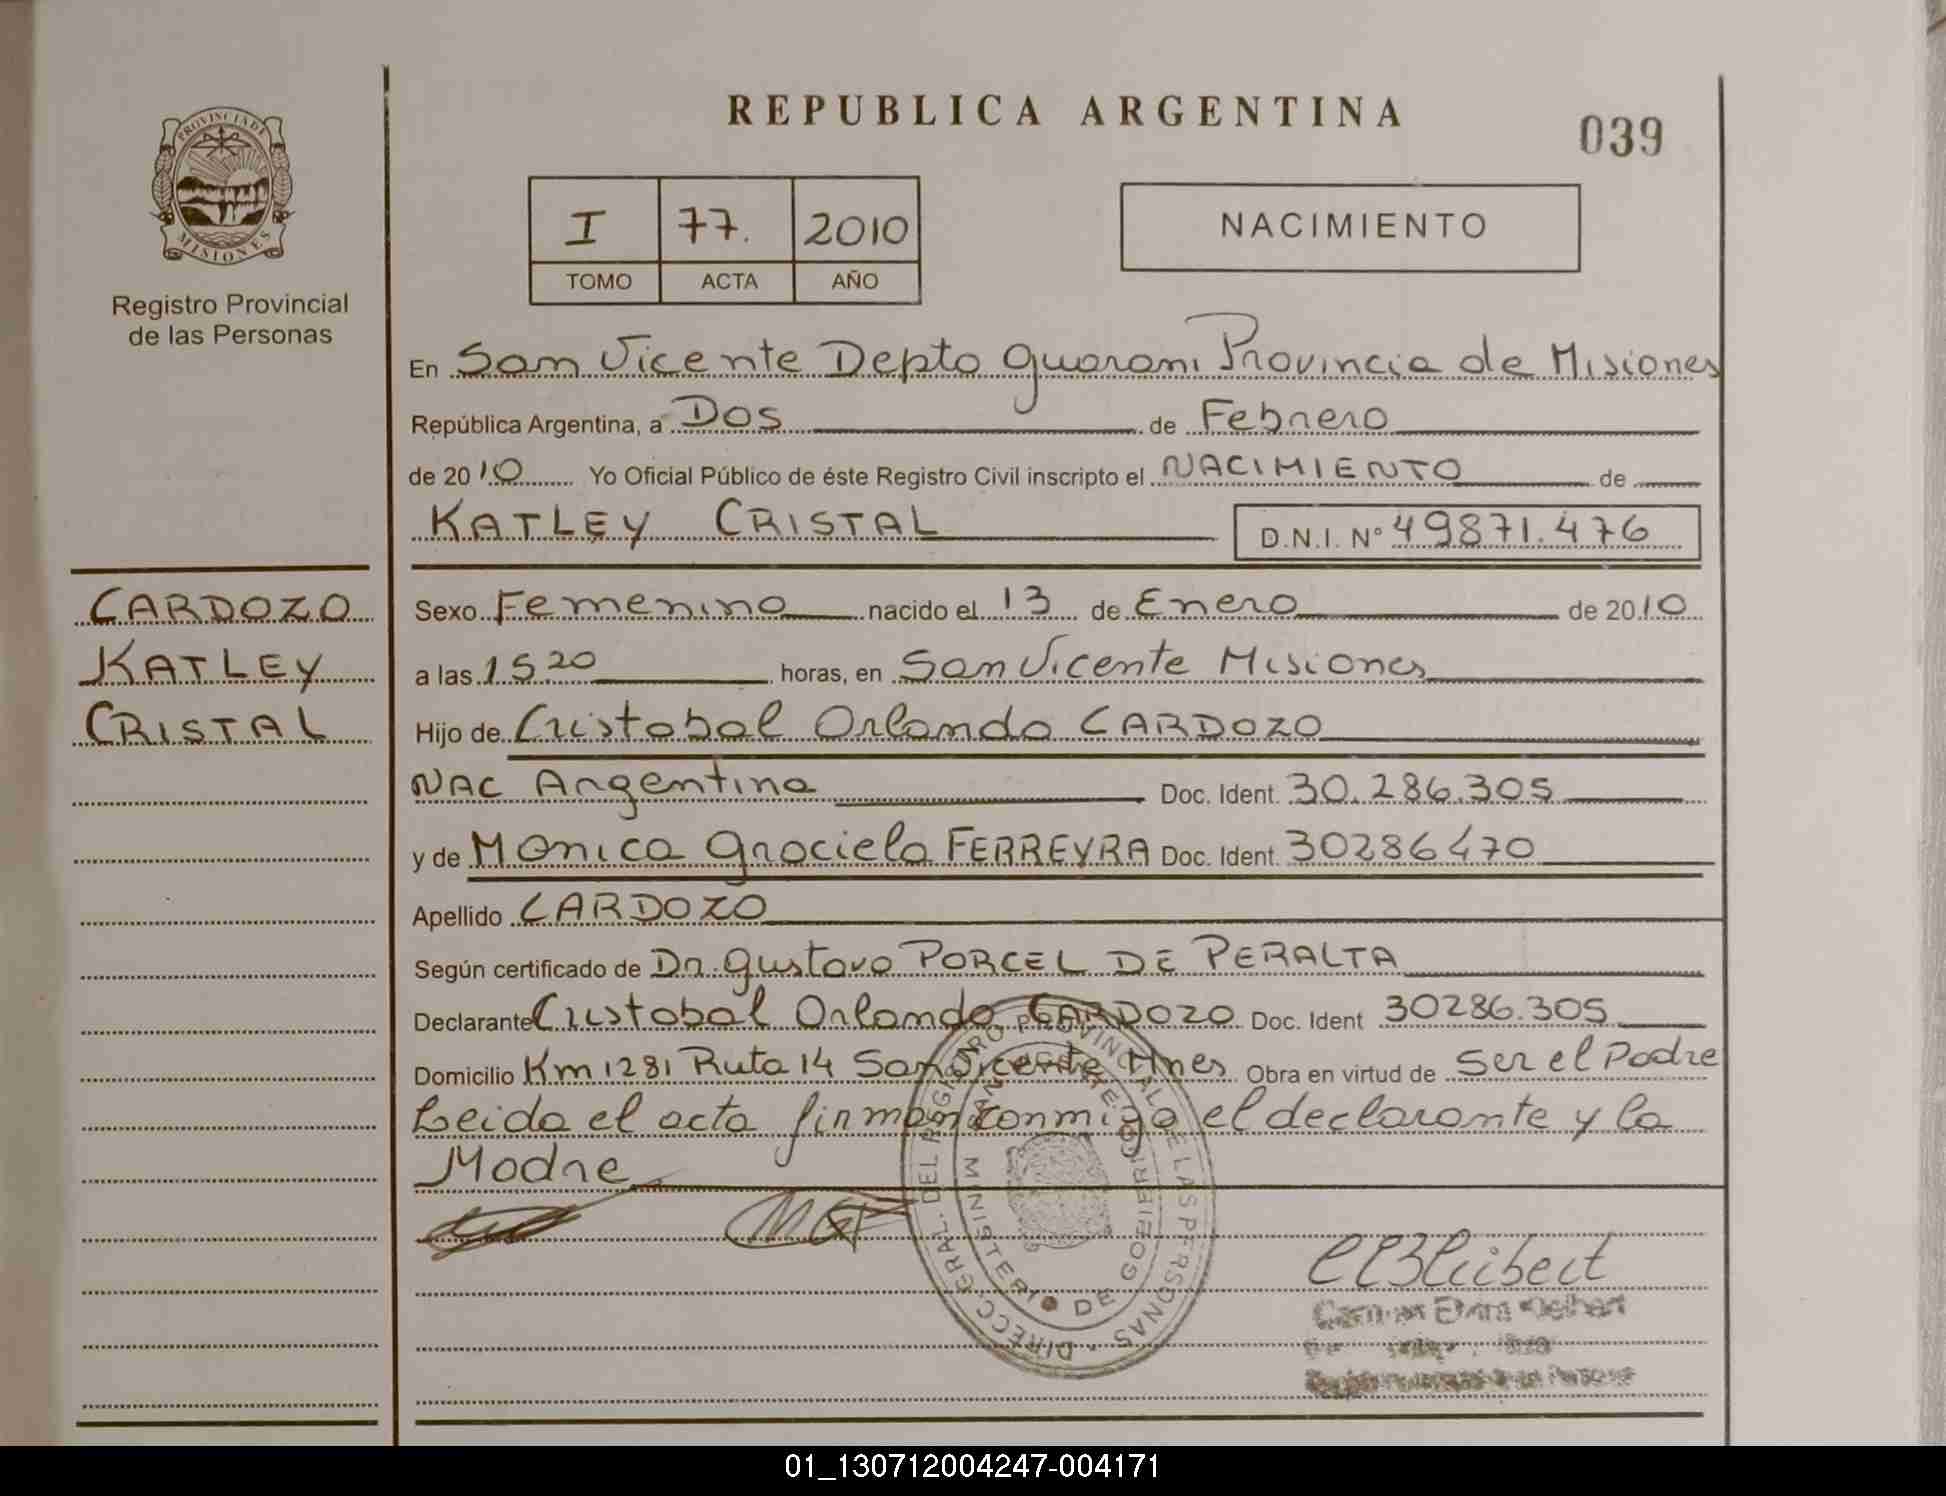 REPUBLICA ARGENTINA
039
PROVINCIA DE
MISIONES
Registro Provincial
de las Personas
I 77. 2010
TOMO ACTA AÑO
NACIMIENTO
En San Vicente Depto Guarani Provincia de Misiones
República Argentina, a Dos de Febrero
de 2010 Yo Oficial Público de éste Registro Civil inscripto el NACIMIENTO de
KATLEY CRISTAL D.N.I. Nº 49871.476
CARDOZO
KATLEY
CRISTAL
Sexo Femenino nacido el 13 de Enero de 2010
a las 15 20 horas, en San Vicente Misiones
Hijo de Cristobal Orlando CARDOZO
NAC Argentina Doc. Ident. 30.286.305
y de Monica Graciela FERREYRA Doc. Ident. 30286470
Apellido CARDOZO
Según certificado de Dr. Gustavo PORCEL DE PERALTA
Declarante Cristobal Orlando CARDOZO Doc. Ident 30286.305
Domicilio Km 1281 Ruta 14 San Vicente Mnes Obra en virtud de Ser el Padre
Leida el acta firman conmigo el declarante y la
Madre
MGF
DIRECC. GRAL. DEL REGISTRO PROVINCIAL DE LAS PERSONAS
MINISTERIO DE GOBIERNO
01_130712004247-004171